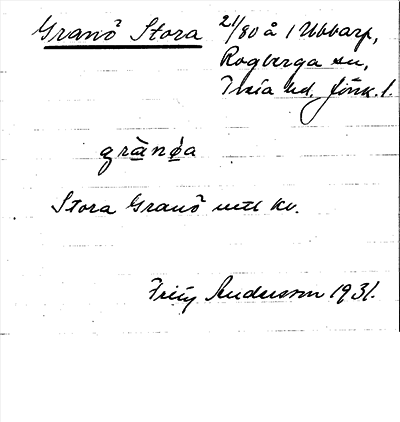 Granö Stora 21/80 å 1 Ubbarp,
Rogberga sn,
Tveta hd. Jönk. l.
grànøa
Stora Granö uttl kv.
Fritz Andersson 1931.